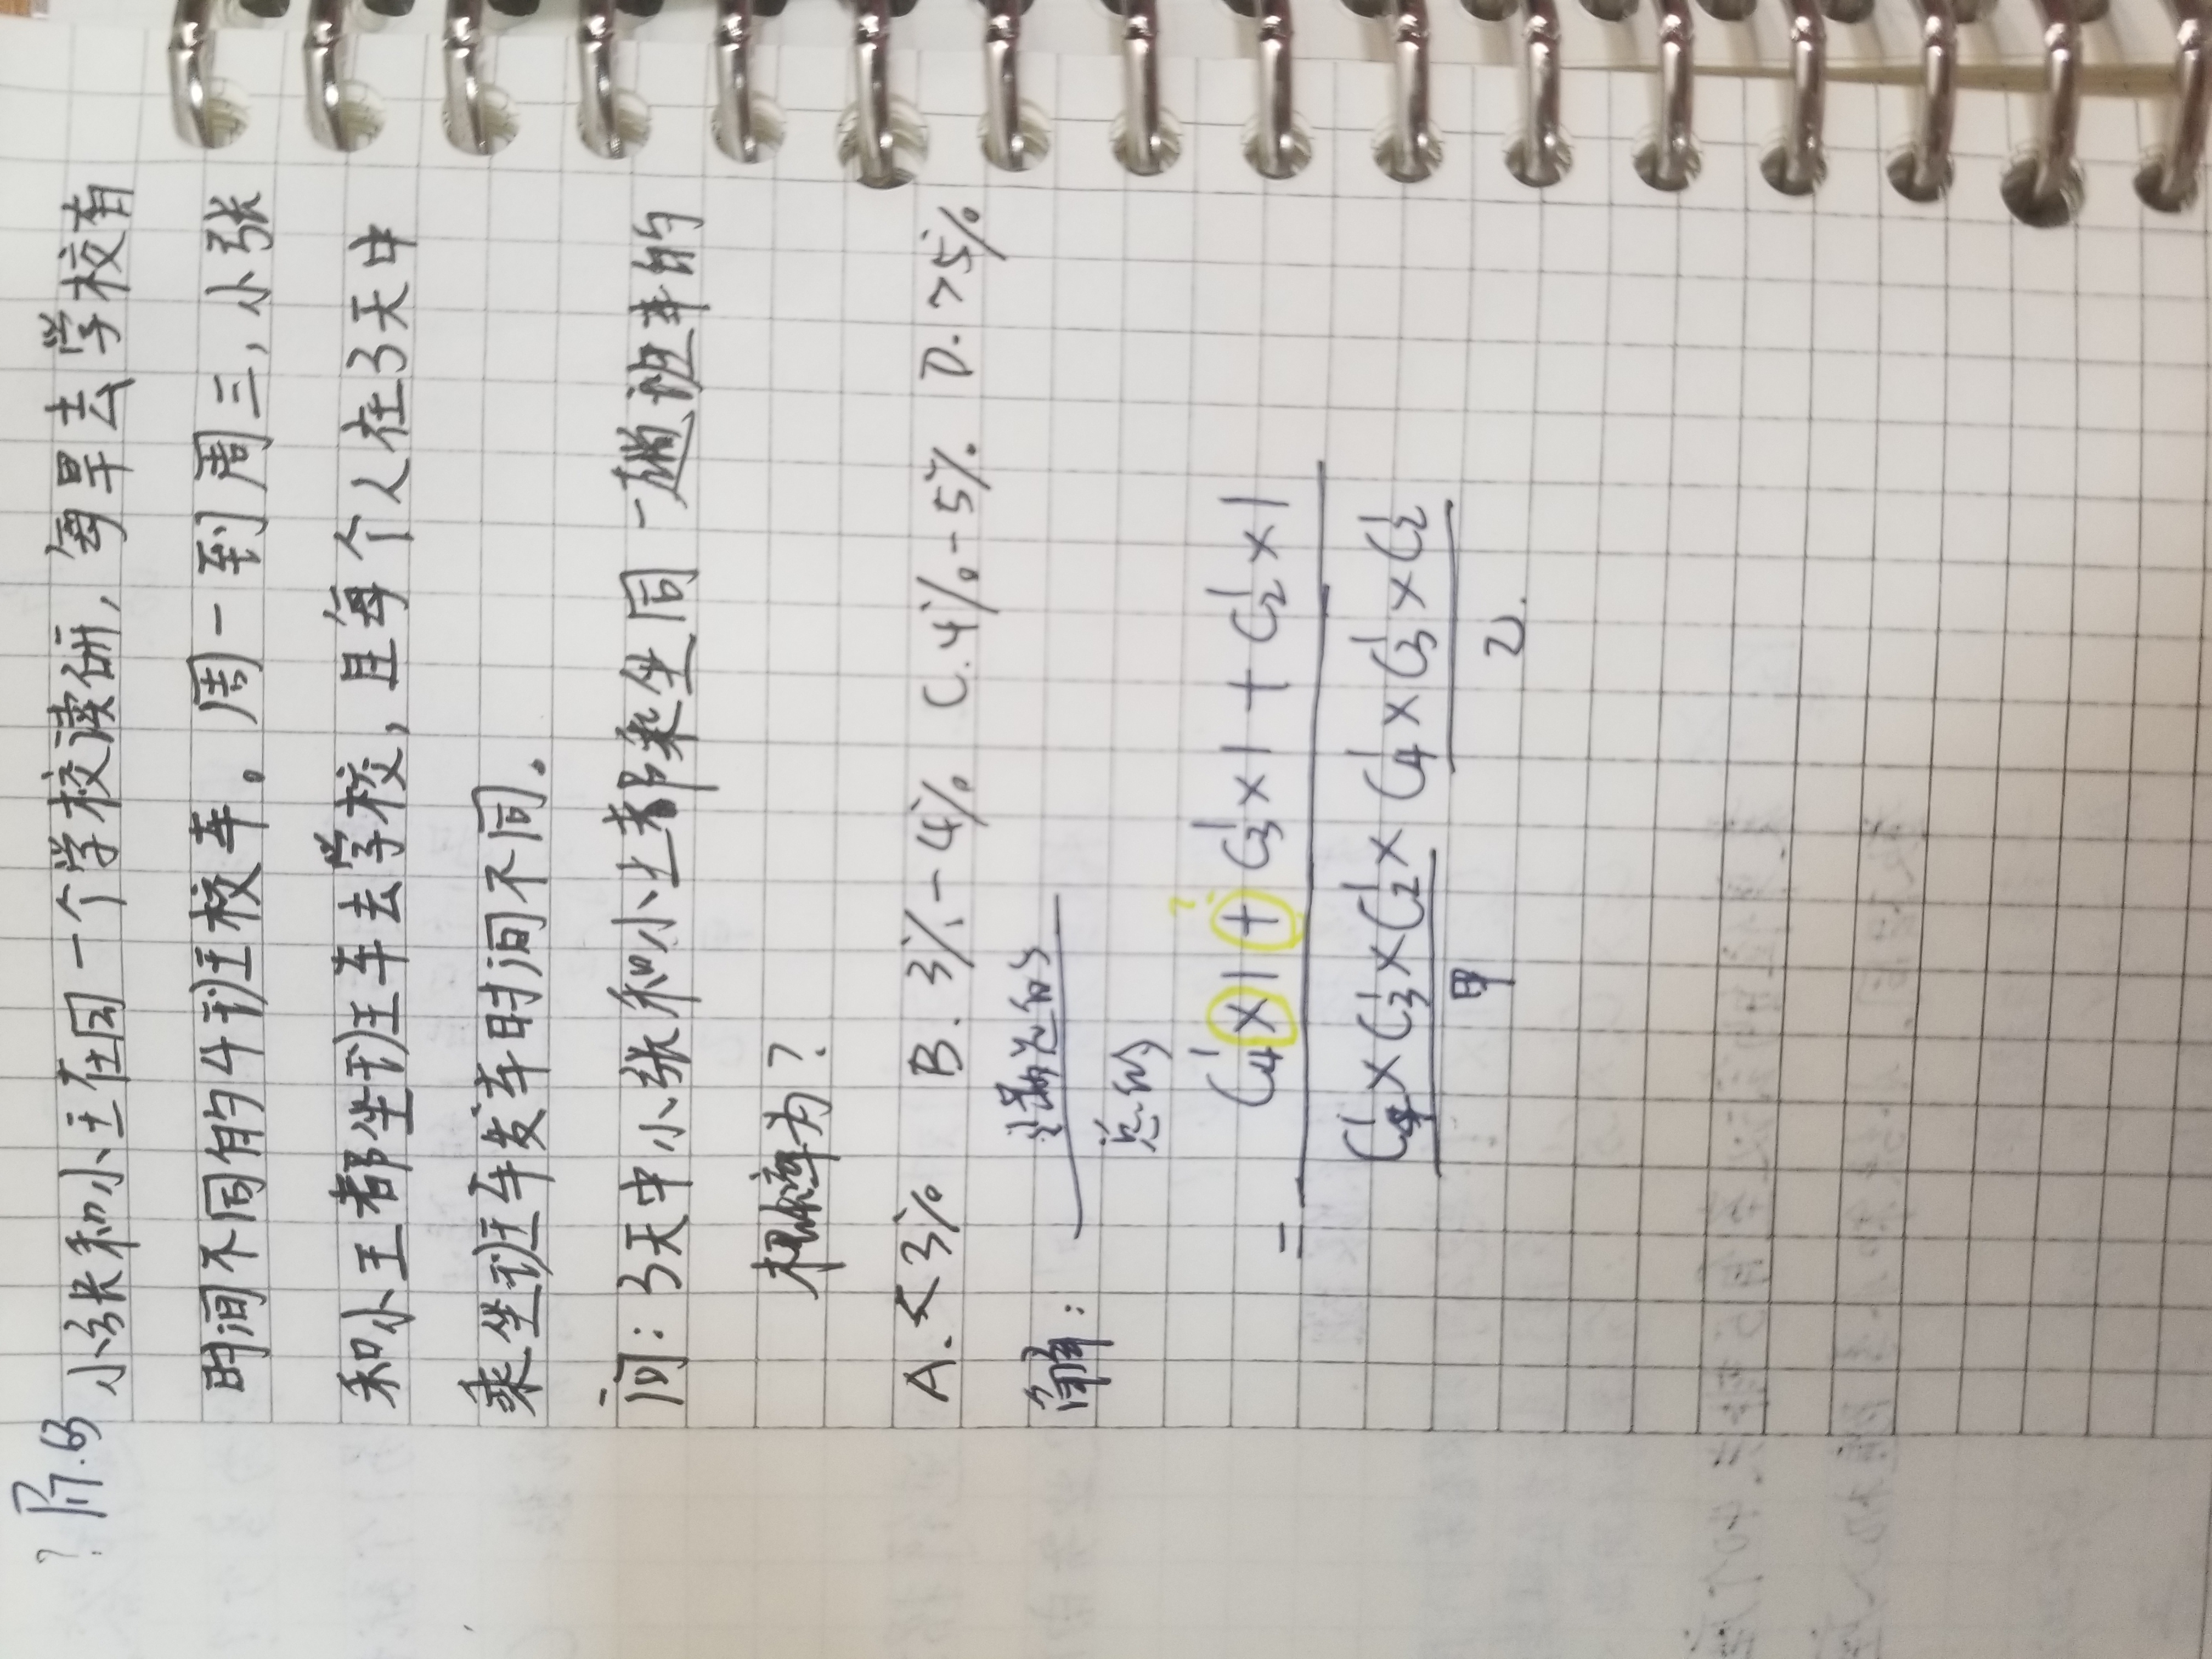 ? 例.63 小张和小王在同一个学校读研,每早去学校有
时间不同的4班校车。周一到周三,小张
和小王都坐班车去学校,且每个人在3天中
乘坐班车发车时间不同。
问:3天中小张和小王都乘坐同一趟班车的
概率为?
A.<3% B.3%-4% C.4%-5% D.>5%
解:满足的
总的
= C₄¹×1+C₃¹×1+C₂¹×1 ?
C₄¹×C₃¹×C₂¹×C₄¹×C₃¹×C₂¹
甲 乙.